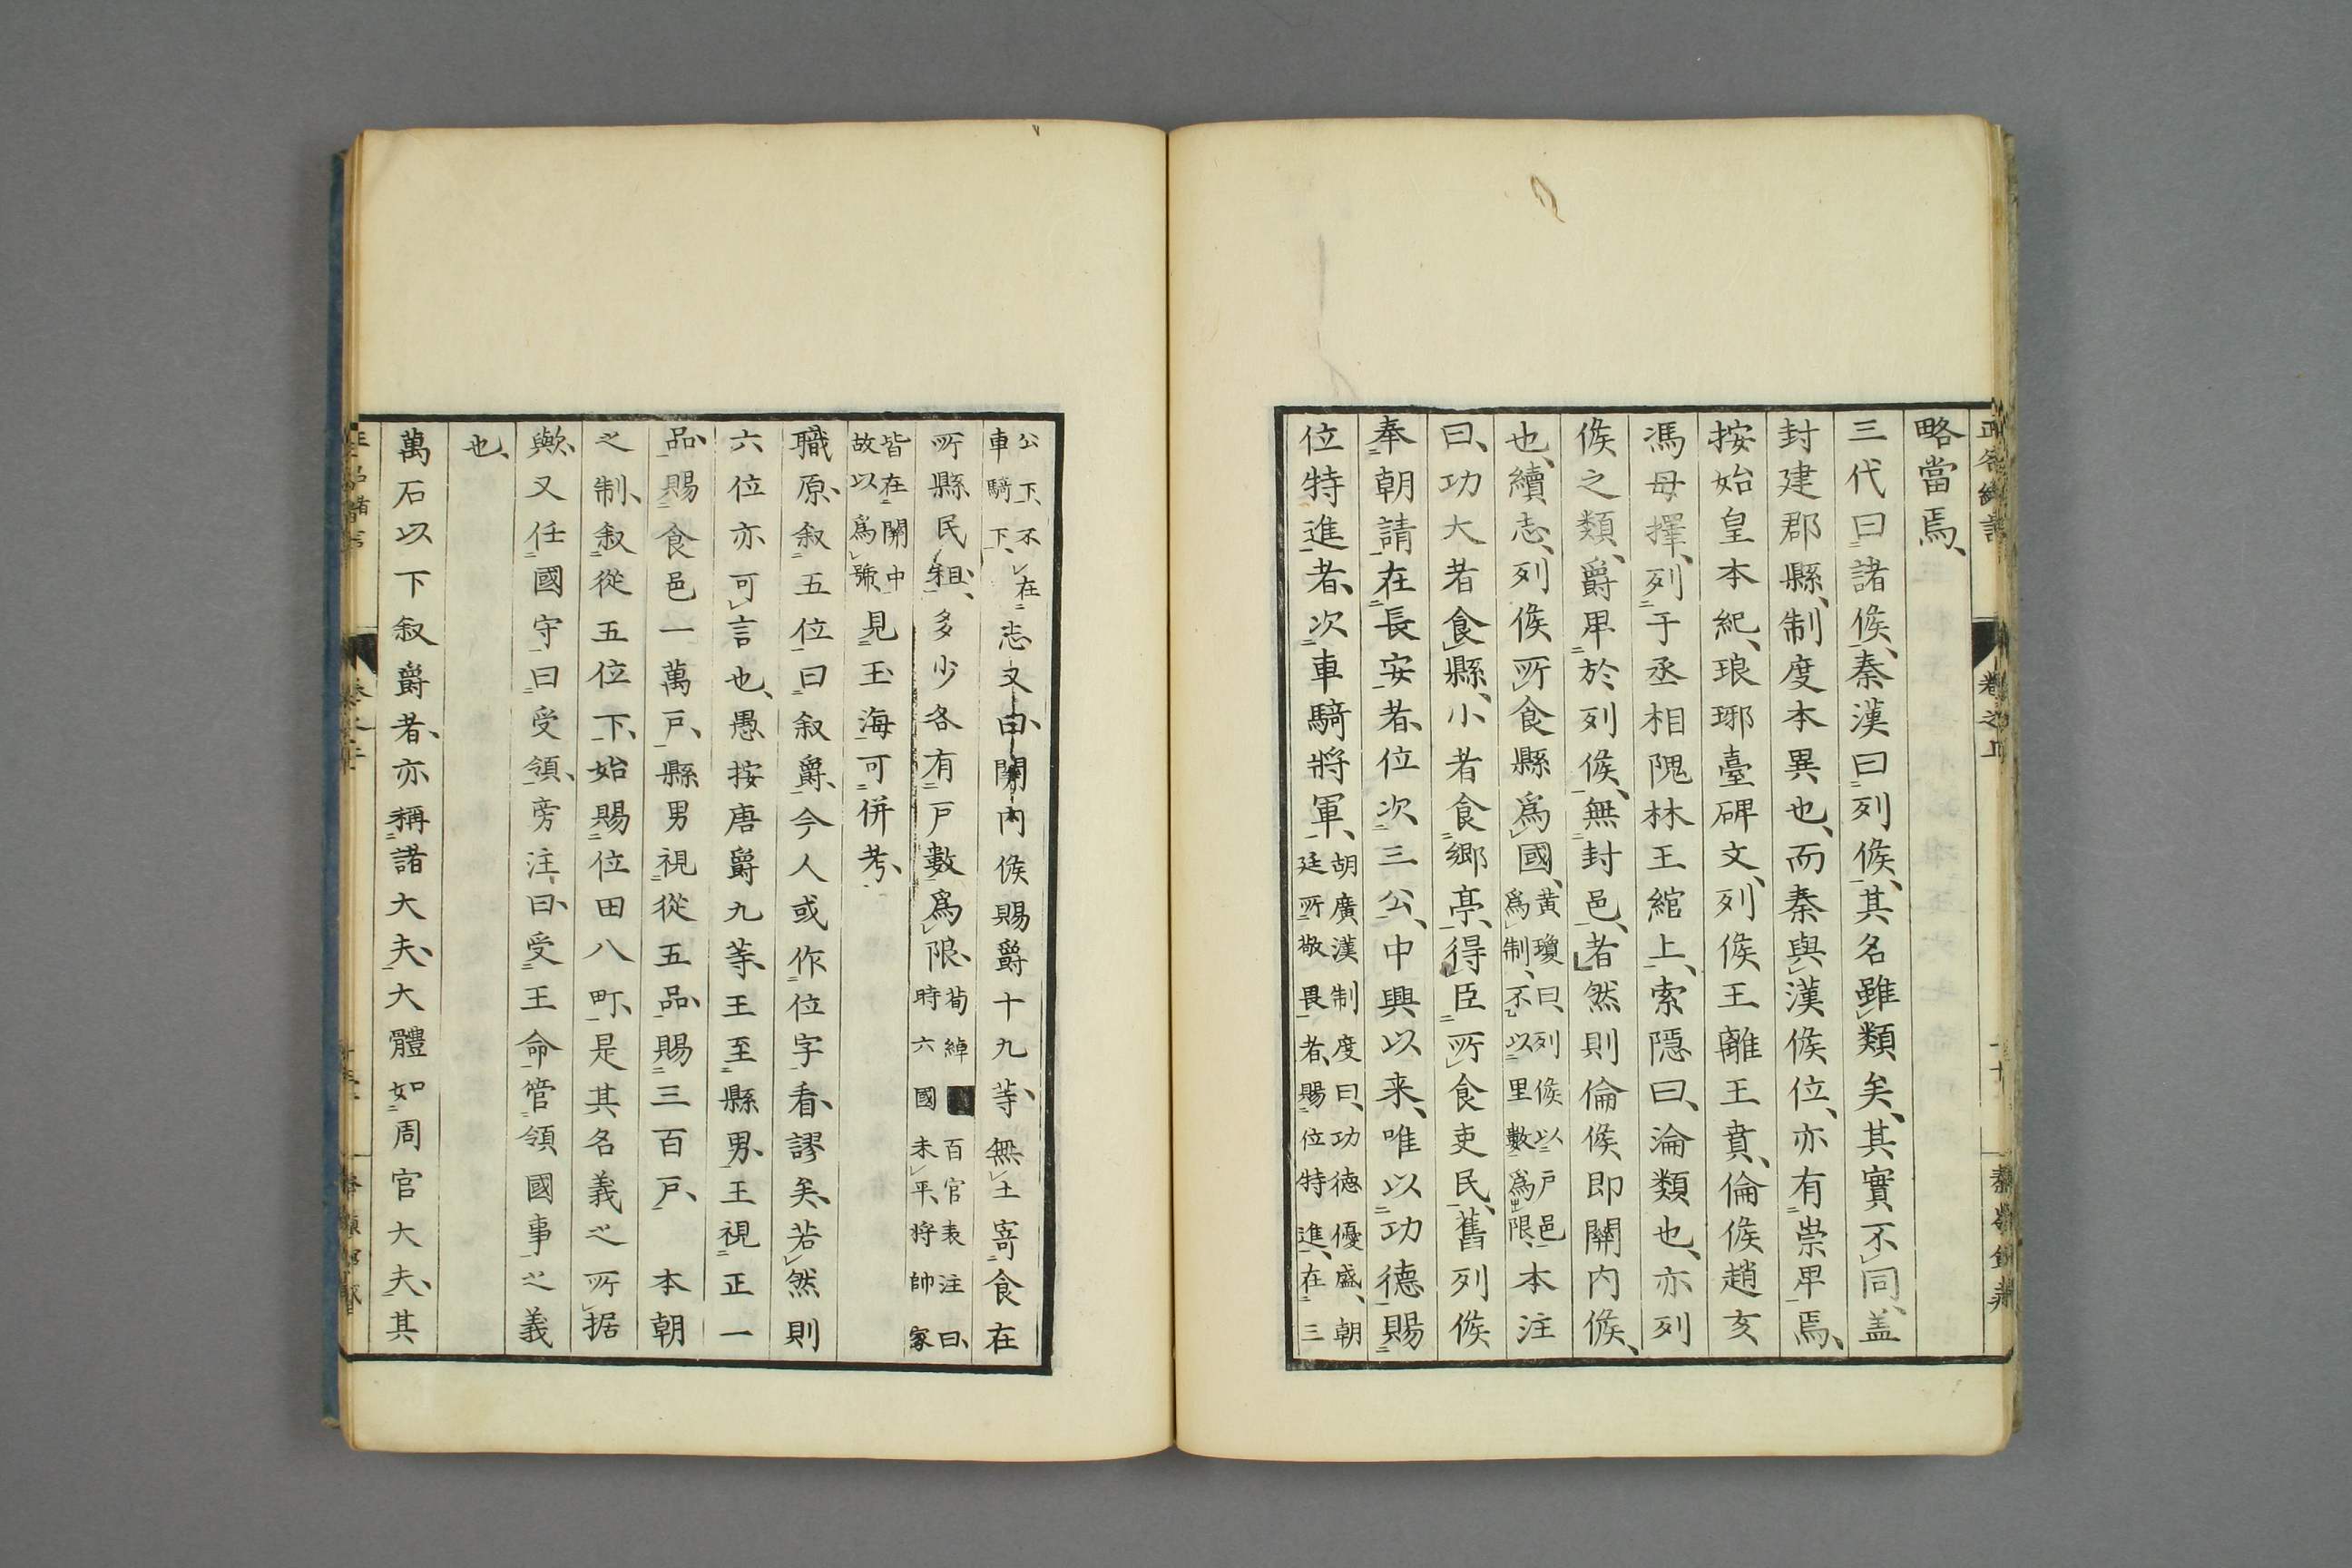 略當焉、
三代曰諸侯、秦漢曰列侯、其名雖類矣、其實不同、蓋
封建郡縣、制度本異也、而秦與漢侯位、亦有崇卑焉、
按始皇本紀、琅琊臺碑文、列侯王離王賁、倫侯趙亥
馮毋擇、列于丞相隗林王綰上、索隱曰、淪類也、亦列
侯之類、爵卑於列侯、無封邑者、然則倫侯、即關内侯、
也、續志、列侯所食縣爲國、黃瓊曰、列侯以戶邑爲制、不以里數爲限、本注
曰、功大者食縣、小者食鄉亭、得臣所食吏民、舊列侯
奉朝請在長安者、位次三公、中興以来、唯以功德賜
位特進者、次車騎將軍、胡廣漢制度曰、功德優盛、朝廷所敬畏者、賜位特進、在三
公下、不在車騎下、志又曰、關内侯賜爵十九等、無土寄食在
所縣、民租多少、各有戶數爲限、荀綽百官表注曰、時六國未平、將帥家
皆在關中、故以爲號、見玉海可併考、
職原、叙五位曰叙爵、今人或作位字看、謬矣、若然則
六位亦可言也、愚按唐爵九等、王至縣男、王視正一
品、賜食邑一萬戶、縣男視從五品、賜三百戶、 本朝
之制、叙從五位下、始賜位田八町、是其名義之所据
歟、又任國守曰受領、旁注曰、受王命管領國事之義
也、
萬石以下叙爵者、亦稱諸大夫、大體如周官大夫、其